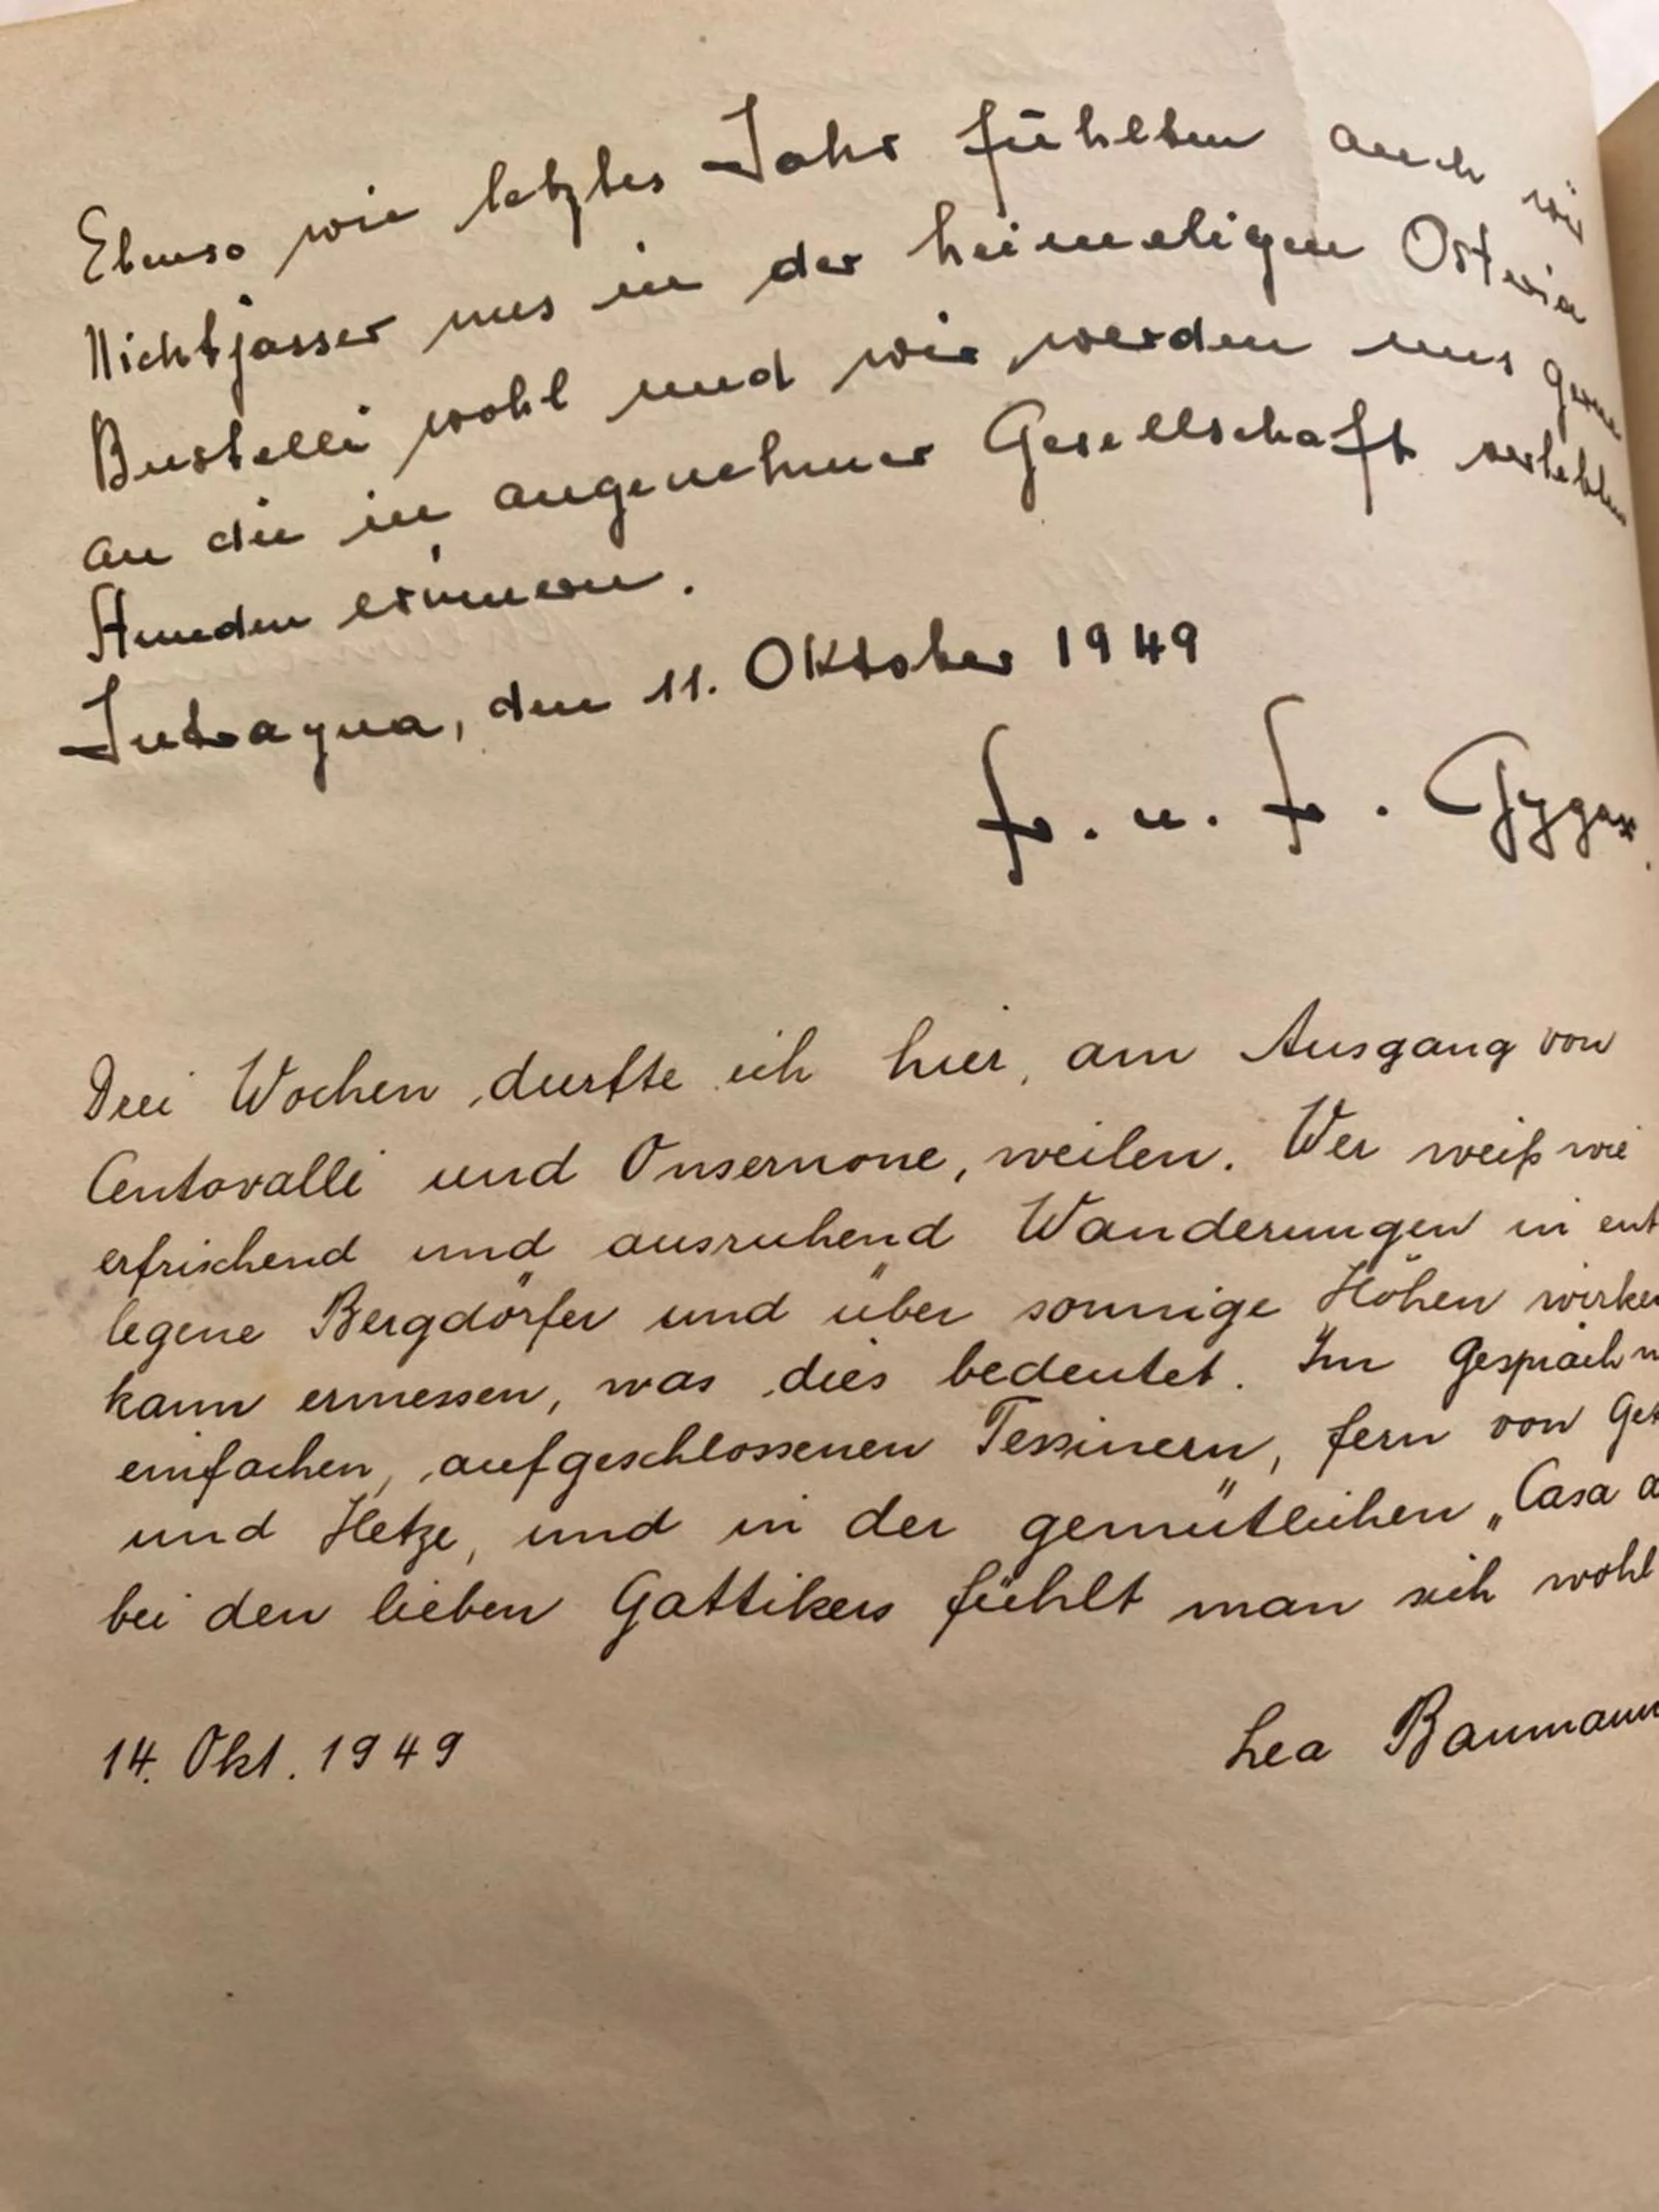 Ebenso wie letztes Jahr fühlten auch wir
Nichtjasser uns in der heimeligen Osteria
Bustelli wohl und wir werden uns gerne
an die in angenehmer Gesellschaft verlebten
Stunden erinnern.
Intragna, den 11. Oktober 1949
Fr. u. Fr. Gygax.
Drei Wochen durfte ich hier, am Ausgang von
Centovalli und Onsernone, weilen. Wer weiß wie
erfrischend und ausruhend Wanderungen in ent
legene Bergdörfer und über sonnige Höhen wirken
kann ermessen, was dies bedeutet. Im Gespräch
einfachen, aufgeschlossenen Tessinern, fern von
und Hetze, und in der gemütlichen „Casa
bei den lieben Gattikers fühlt man sich wohl
14. Okt. 1949
Lea Baumann